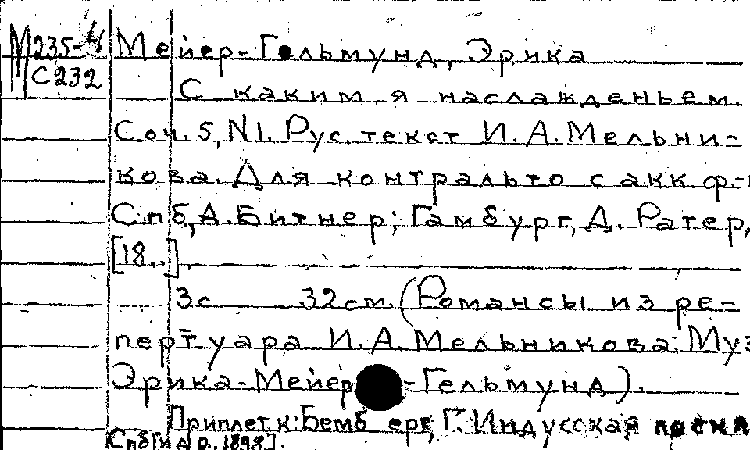 М235-4
С232
Мейер-Гельмунд, Эрика
С каким я наслажденьем.
Соч. 5, N1. Рус. текст И.А.Мельни-
кова. Для контральто с акк. ф-
Спб, А. Битнер; Гамбург, Д. Ратер,
[18..].
3с 32см (Романсы из ре-
пертуара И.А.Мельникова. Муз
Эрика-Мейер-Гельмунд).
Приплет к: Бемберг, Г. Индусская
Спб [и др., 1898].